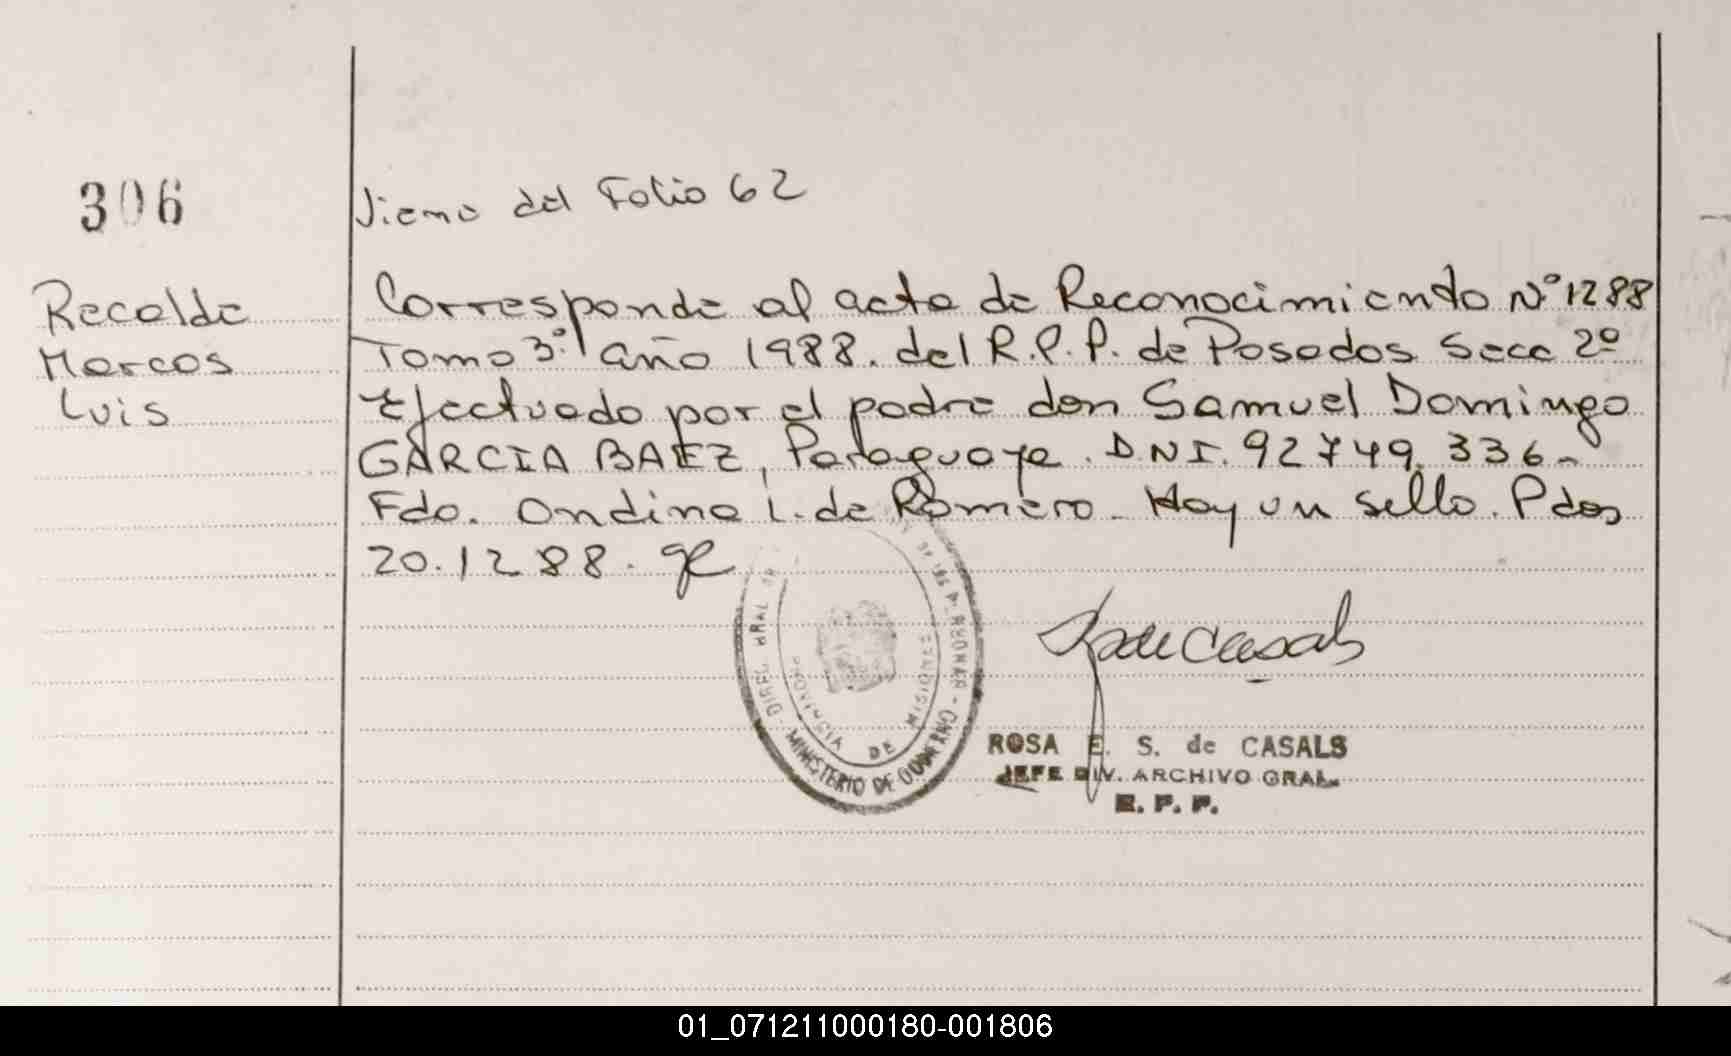 306
Viene del Folio 62
Recalde
Marcos
Luis
Corresponde al acta de Reconocimiento Nº 1288
Tomo 3º. año 1988. del R.P.P. de Posadas Secc 2º
Efectuado por el padre don Samuel Domingo
GARCIA BAEZ, Paraguaya. DNI. 92749.336-
Fdo. Ondina L. de Romero - Hay un sello. Pdas
20.12 88.
MINISTERIO DE
DE MISIONES
ROSA E. S. de CASALS
JEFE DIV. ARCHIVO GRAL.
R. P. P.
01_071211000180-001806